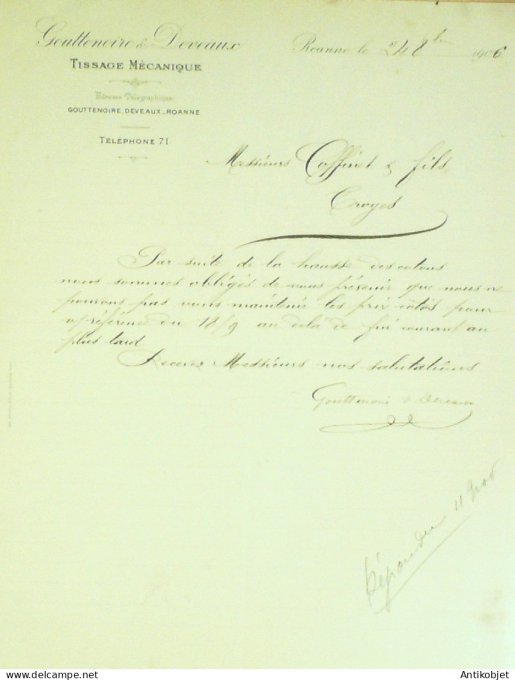 Gouttenoire & Deveaux
Roanne le 24 8bre 1906
TISSAGE MÉCANIQUE
Adresse Télégraphique
GOUTTENOIRE, DEVEAUX_ROANNE
TÉLÉPHONE 71
Messieurs Coffinet & fils
Troyes
Par suite de la hausse des cotons
nous sommes obligés de vous prévenir que nous ne
pouvons pas vous maintenir les prix cotés pour
référence du 18/9 au delà de fin courant au
plus tard
Recevez Messieurs nos salutations
Gouttenoire & Deveaux
Répondu 11 9bre
Antikobjet